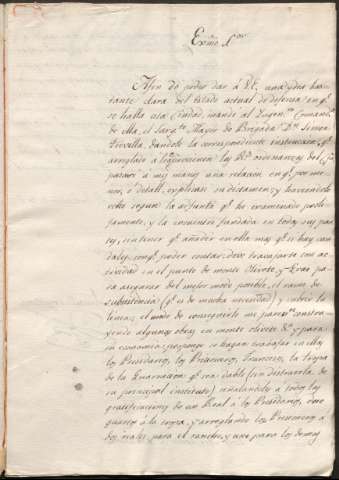 Exmo Sor
Afin de poder dar á V.E. una ydea bas-
tante clara del estado actual de defensa en qe
se halla esta Ciudad, mandé al Yngeno Comante
de ella, el Sargto Mayor de Brigada Dn
dandole la correspondiente instruccion, qe
arreglado á las Rs ordenanzas del
pasara á mis manos una relacion en qe por me-
nor, ó detall, explicase su dictamen; y haviendolo
echo segun la adjunta qe he examinado proli-
jamente, y la encuentro fundada en todas sus par-
tes, sin tener qe añadir en ella mas qe si hay cau-
dales, con qe poder contar, deve trabajarse con ac-
tividad en el punto de monte Olivete, y Grao pa-
ra asegurar del mejor modo posible, el ramo de
subsistencia (qe es de mucha necesidad) y cubrir la
linea; el modo de conseguirlo mi parecer constru-
yendo algunas obras en monte olivete &a y para
su economia propongo se hagan trabajar en ellas,
los Presidarios, los Prisioneros Franceses, la tropa
de la Guarnicion qe sea dable (sin destraerla de
su principal instituto) señalandoles á todos las
gratificaciones de un Real á los Presidarios, doce
quartos á la tropa, y arreglando los Prisioneros á
dos reales para el rancho, y uno para los demas